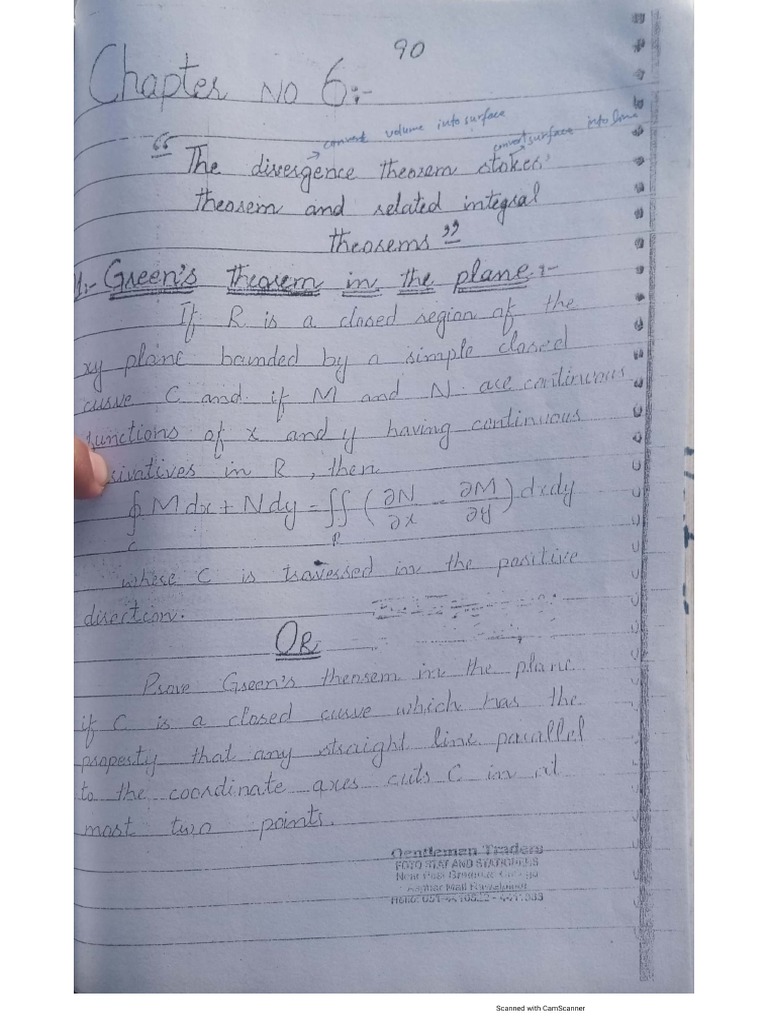 90
Chapter NO 6:-
convert volume into surface
convert surface into line
"The divergence theorem stokes'
theorem and related integral
theorems"
1:- Green's theorem in the plane:-
If R is a closed region of the
xy plane bounded by a simple closed
curve C and if M and N are continuous
functions of x and y having continuous
ivatives in R, then
∮ M dx + N dy = ∬ (∂N/∂x - ∂M/∂y) dxdy
C R
where C is traversed in the positive
direction.
OR
Prove Green's theorem in the plane
if C is a closed curve which has the
property that any straight line parallel
to the coordinate axes cuts C in at
most two points.
Gentlemen Traders
FOTO STAT AND STATIONERS
Scanned with CamScanner